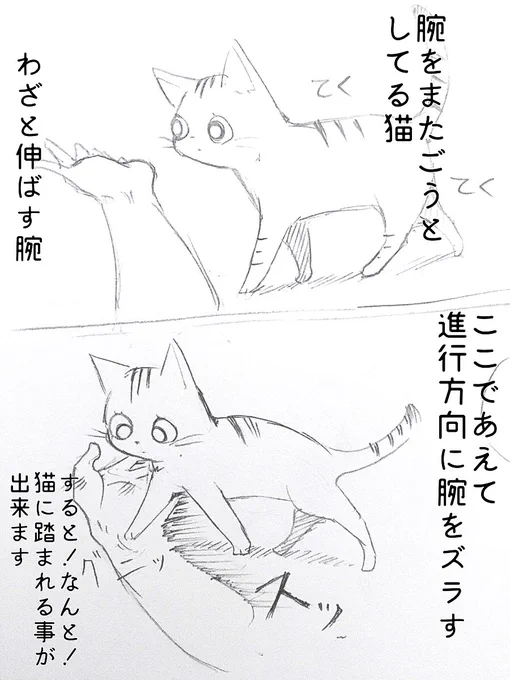 腕をまたごうと
してる猫
てく
てく
わざと伸ばす腕
ここであえて
進行方向に腕をズラす
すると！なんと！
猫に踏まれる事が
出来ます
グーッ
スッ